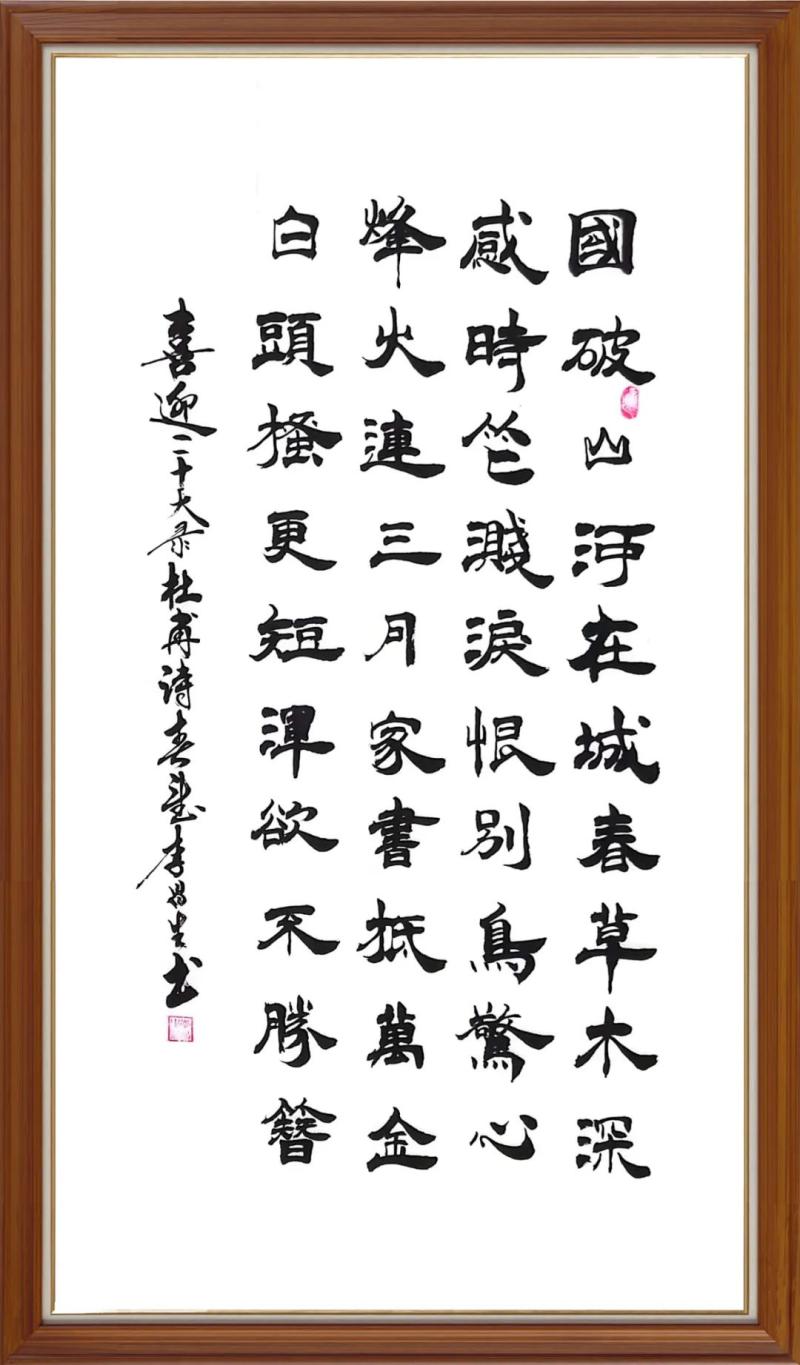 國破山河在城春草木深
感時花濺淚恨別鳥驚心
烽火連三月家書抵萬金
白頭搔更短渾欲不勝簪
喜迎二十大录杜甫诗春望李昌生书